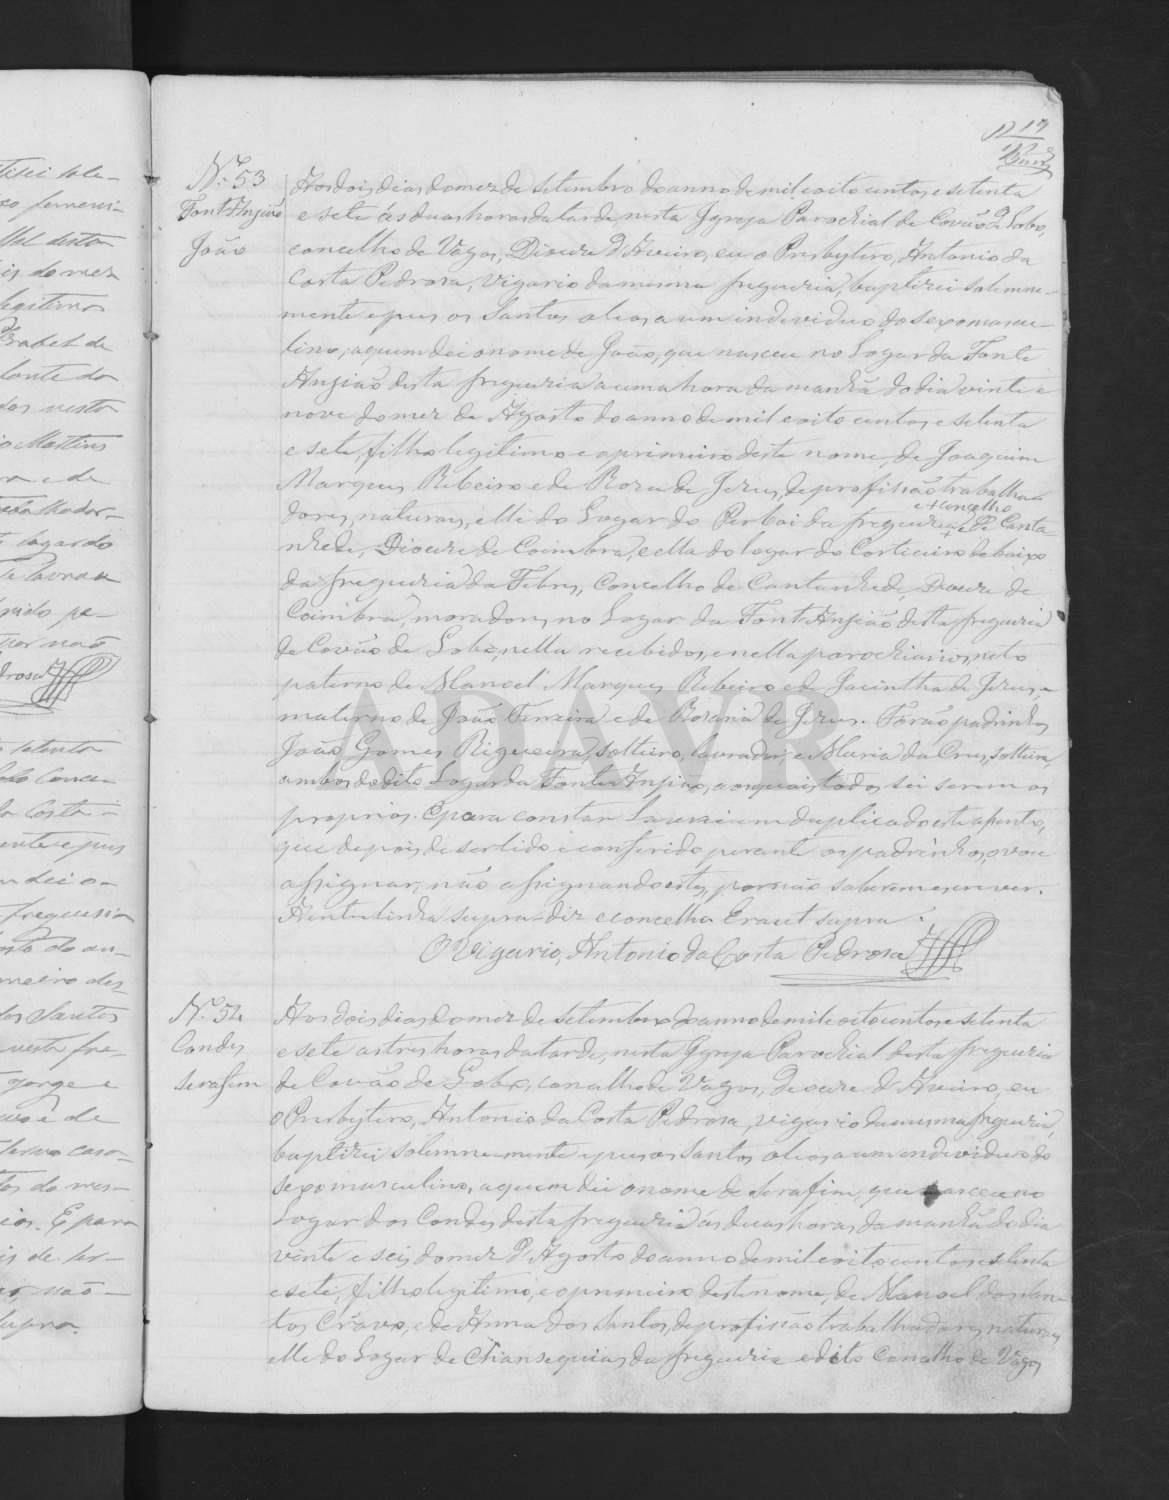 17
Nº 53
Font'Anjião
João
Aos dois dias do mez de Setembro do anno de mil e oito centos e setenta
e sete ás duas horas da tarde, nesta Igreja Parochial de Covão de Lobo,
concelho de Vagos, Diocese d'Aveiro, eu o Presbytero, Antonio da
Costa Pedrosa, Vigario da mesma freguezia, baptizei solemne-
mente e puz os Santos oleos a um individuo do sexo mascu-
lino; a quem dei o nome de João, que nasceu no Logar da Fonte
Anjião desta freguezia a uma hora da manhã do dia vinte e
nove do mez de Agosto do anno de mil e oito centos e setenta
e sete, filho legitimo e o primeiro deste nome, de Joaquim
Marques Ribeiro e de Roza de Jezus, de profissão trabalha-
e + concelho
dores, naturaes, elle do Logar do da freguezia + de Canta-
nhede, Diocese de Coimbra, e ella do logar do Corticeiro de baixo
da freguezia da Febres, Concelho de Cantanhede, Diocese de
Coimbra, moradores no Logar da Font'Anjião desta freguezia
de Covão de Lobo, nella recebidos, e nella parochianos, neto
paterno de Manoel Marques Ribeiro e de Jacintha de Jezus e
materno de João Ferreira e de Rosaria de Jezus. Forão padrinhos
João Gomes Rigueira, solteiro, lavrador, e Maria da Cruz, solteira,
ambos do dito Logar da Fonte Anjião, aos quais todos sei serem os
proprios. E para constar lavrei em duplicado este assento,
que depois de ser lido e conferido perante os padrinhos, o vou
assignar, não assignando estes, por não saberem escrever.
A entrelinha supra diz e concelho. Era ut supra.
O Vigario, Antonio da Costa Pedrosa
Nº 54
Condes
Serafim
Aos dois dias do mez de Setembro do anno de mil e oito centos e setenta
e sete as tres horas da tarde, nesta Igreja Parochial desta freguezia
de Covão de Lobo, concelho de Vagos, Diocese d'Aveiro, eu
o Presbytero, Antonio da Costa Pedrosa, vigario da mesma freguezia,
baptizei solemne-mente e puz os Santos oleos a um individuo do
sexo masculino, a quem dei o nome de Serafim, que nasceu no
Logar dos Condes, desta freguezia ás duas horas da manhã do dia
vinte e seis do mez d'Agosto do anno de mil e oito centos e setenta
e sete, filho legitimo, e o primeiro deste nome, de Manoel dos San-
tos Cravo, e de Anna dos Santos, de profissão trabalhadores, naturaes,
elle do Logar de da freguezia e dito Concelho de Vagos
ADAVR